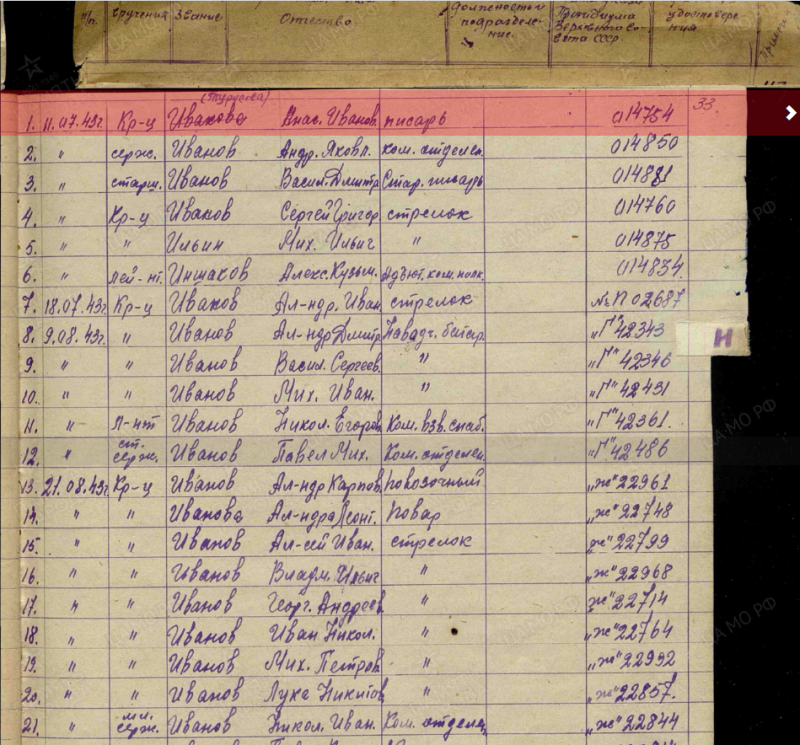 п/п. вручения Звание Отчество должность и подразделение. Президиума Верховного Совета СССР. удостоверения
33.
1. 11.07.43г. Кр-ц Иванова Анас. Иванов. писарь 014754
2. " серж. Иванов Андр. Яковл. ком. отделен. 014850
3. " старш. Иванов Васил. Дмитр. Стар. писарь 014881
4. " Кр-ц Иванов Сергей Григор. стрелок 014760
5. " " Ильин Мих. Ильич " 014875
6. " лей-нт. Иншаков Алекс. Кузьм. Адъют. ком. полк. 014834
7. 18.07.43г. Кр-ц Иванов Ал-ндр. Иван. стрелок №П 02687
8. 9.08.43г. " Иванов Ал-ндр Дмитр. Наводч. батар. „Г" 42343
Н
9. " " Иванов Васил. Сергеев. " „Г" 42346
10. " " Иванов Мих. Иван. " „Г" 42431
11. " Л-нт Иванов Никол. Егоров. Ком. взв. снаб. „Г" 42361.
12. " ст. серж. Иванов Павел Мих. Ком. отделен. „Г" 42486
13. 21.08.43г. Кр-ц Иванов Ал-ндр Карпов. повозочный „Ж" 22961
14. " " Иванова Ал-ндра Леонт. Повар „Ж" 22748
15. " " Иванов Ал-сей Иван. стрелок „Ж" 22799
16. " " Иванов Владм. Ильич " „Ж" 22968
17. " " Иванов Георг. Андреев. " „Ж" 22714
18. " " Иванов Иван Никол. " „Ж" 22764
19. " " Иванов Мих. Петров. " „Ж" 22992
20. " " Иванов Лука Никитов. " „Ж" 22857.
21. " мл. серж. Иванов Никол. Иван. Ком. отделен. „Ж" 22844